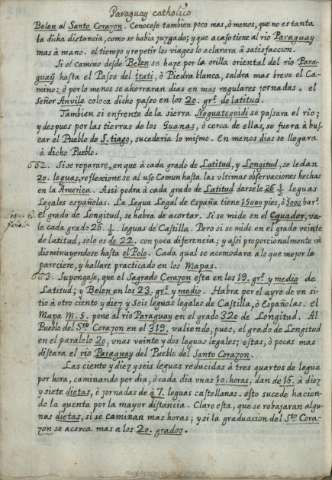 Paraguay catholico
Belen al Santo Corazon. Conocese tambien poco mas, ò menos, que no es tanta
la dicha distancia, como se habia juzgado; y que acaso tiene al rio Paraguay
mas à mano. el tiempo y repetir los viages lo aclarara à satisfaccion.
Si el camino desde Belen se haze por la orilla oriental del rio Para-
guay hasta el Passo del Itati, ò Piedra blanca, saldra mas breve el Ca-
mino; ò por lo menos se ahorraran dias en mas regulares jornadas. el
señor Anvila coloca dicho paseo en los 20. gr.s de latitud.
Tambien si enfrente de la sierra se passara el rio;
y despues por las tierras de los Guanas, ò cerca de ellas, se fuera à bus-
car el Pueblo de S.tiago, sucederia lo mismo. En menos dias se llegara
à dicho Pueblo.
62. Si se repare, en que à cada grado de Latitud, y Longitud, se le dan
20. leguas, reflexione se al uso Comun hasta las ultimas observaciones hechas
en la America. Assi pedra à cada grado de Latitud darsele 26 ½ leguas
Legales españolas. La Legua Legal de España tiene 15000 pies, ò 5000 bar.s
el grado de Longitud, se habra de acortar. Si se mide en el Equador, va-
le cada grado 26. ½ leguas de Castilla. Pero si se mide en el grado veinte
de latitud, solo es de 22. con poca diferencia; y assi proporcionalmente va
disminuyendose hasta el Polo. Cada qual se acomodara à lo que mejor le
pareciere, y hallare practicado en los Mapas.
63. Supongase, que el Sagrado Corazon esta en los 19. gr.s y medio de
Latitud; y Belen en los 23. gr.s y medio. Habra por el ayre de un si-
tio à otro ciento y diez y seis leguas legales de Castilla, ò Españolas. el
Mapa M. S. pone al rio Paraguay en el grado 320 de Longitud. Al
Pueblo del S.to Corazon en el 319. valiendo, pues, el grado de Longitud
en el paralelo 20. unas veinte y dos leguas legales; estas, ò pocas mas
distara el rio Paraguay del Pueblo del Santo Corazon.
Las ciento y diez y seis leguas reducidas à tres quartos de legua
por hora, caminando por dia, ò cada dia unas 10. horas, dan de 15. à diez
y siete dietas, è jornadas de à 7. leguas castellanas. esto sucede hacien-
do la quenta por la mayor distancia. Claro esta, que se rebajaran algu-
nas dietas, si se caminan mas horas; y si la graduacion del S.to Cora-
zon se acerca mas à los 20. grados.